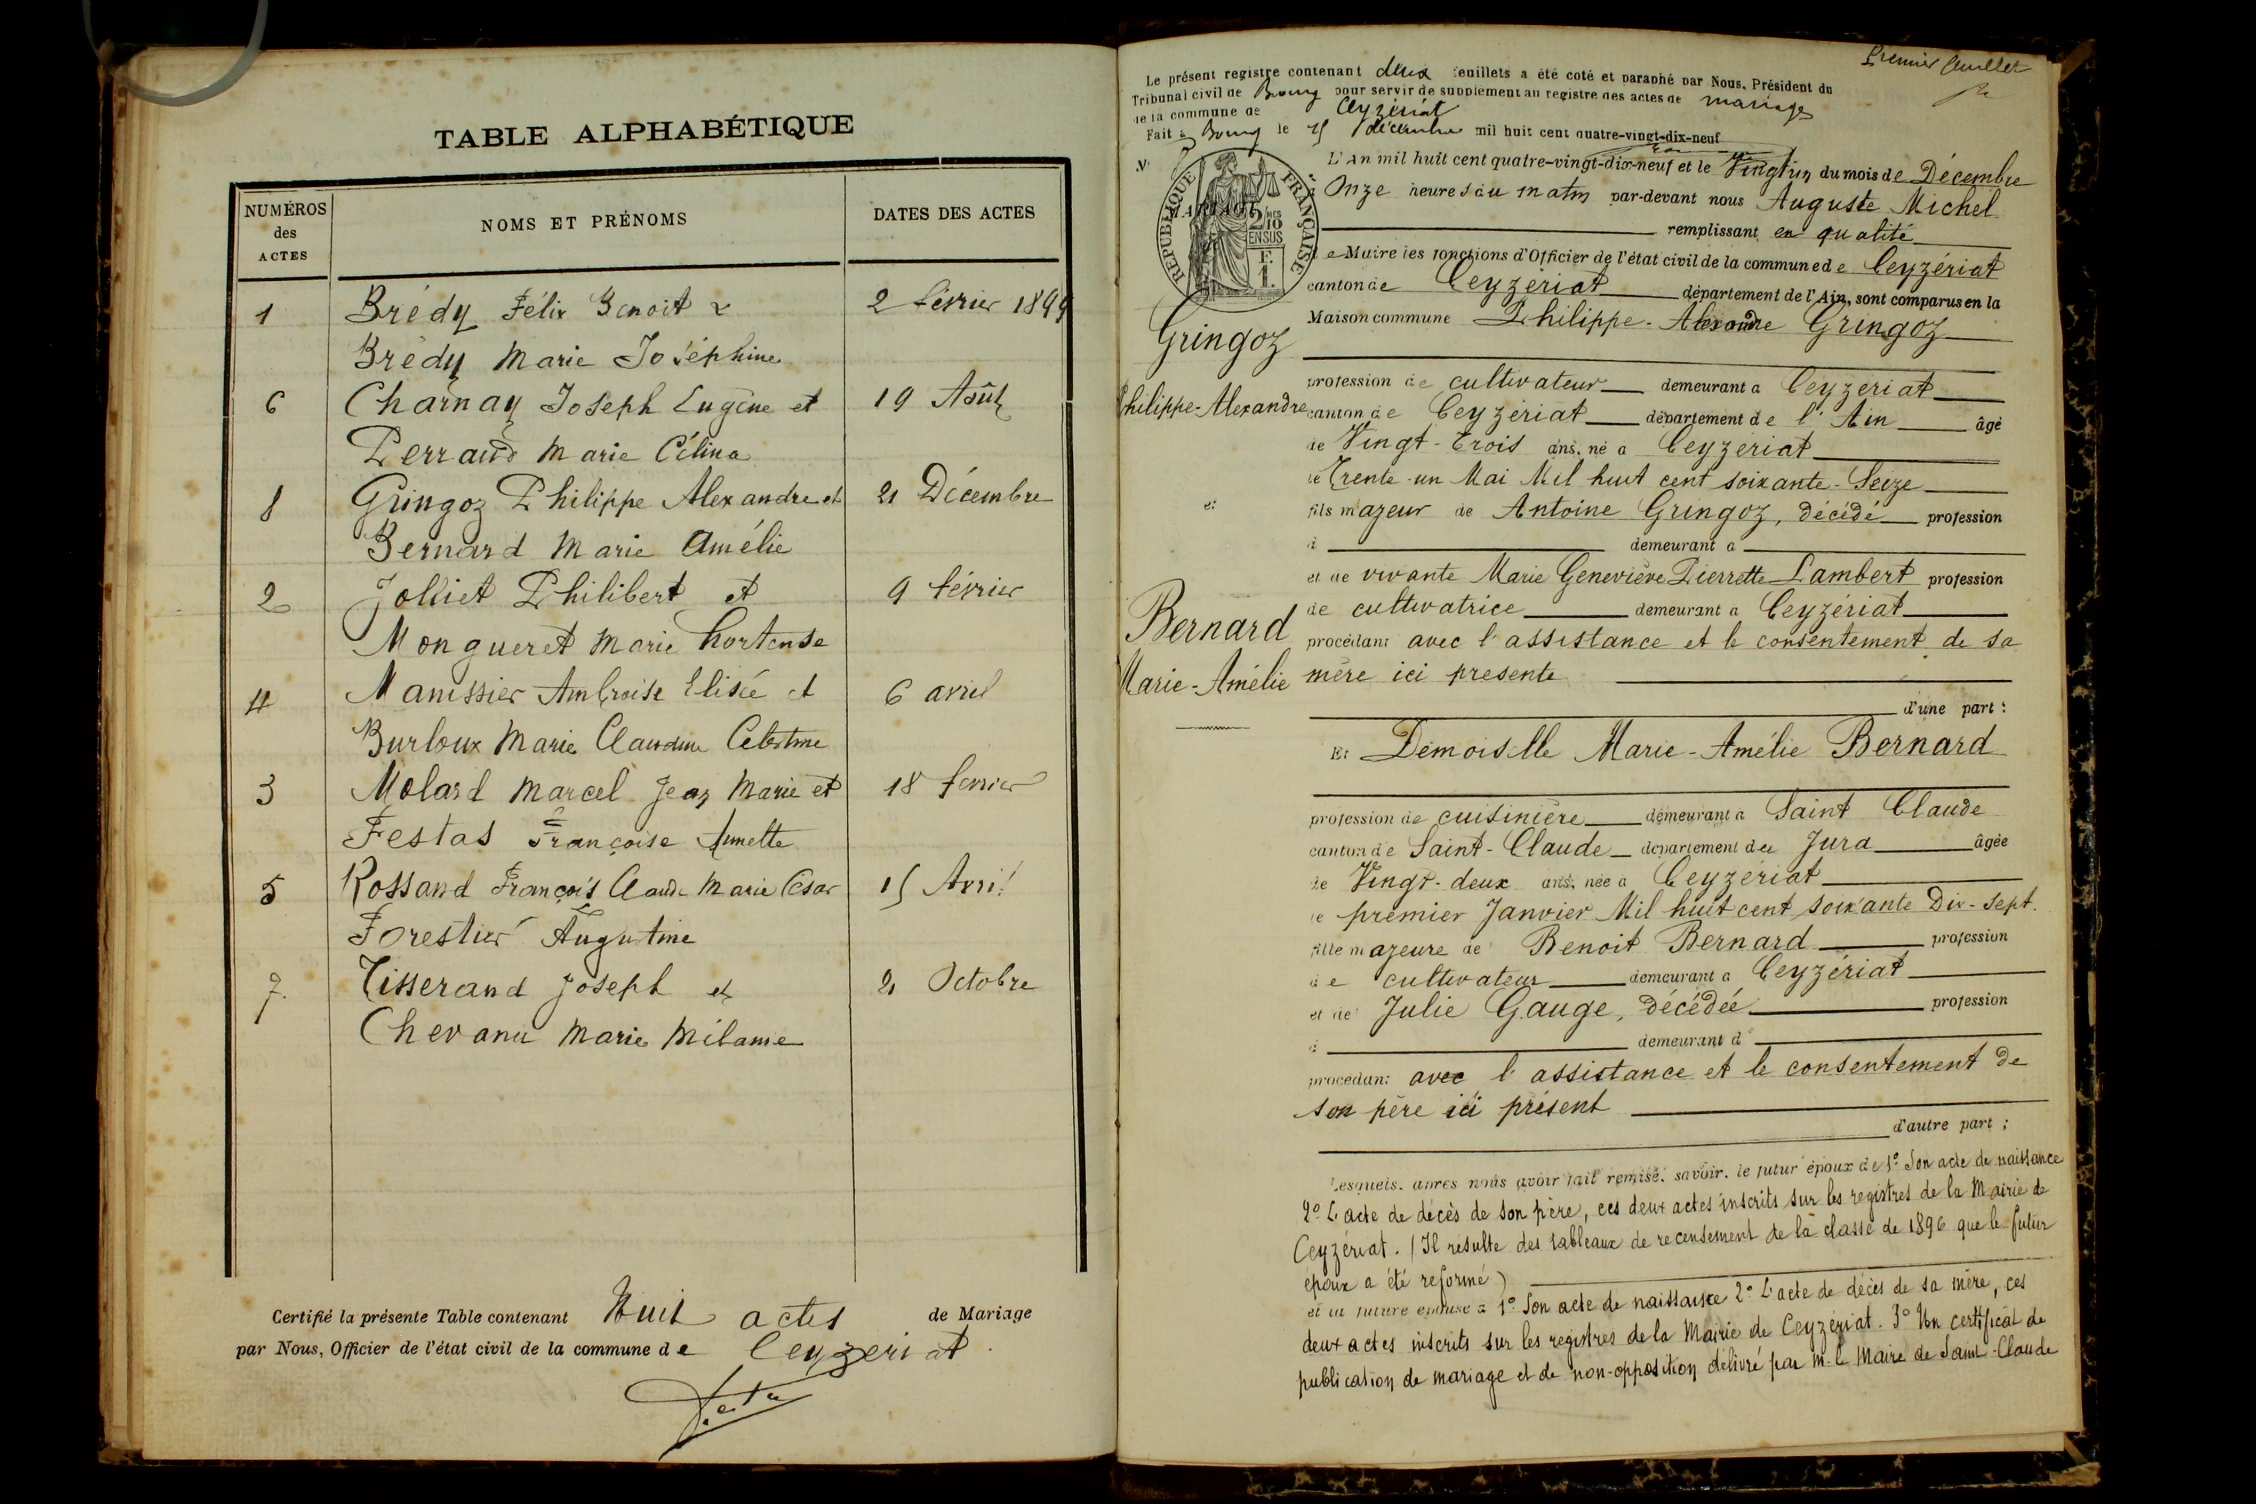 TABLE ALPHABÉTIQUE
NUMÉROS des ACTES
NOMS ET PRÉNOMS
DATES DES ACTES
1 Brédy Félix Benoit & 2 février 1899
Brédy Marie Joséphine
6 Charnay Joseph Eugène et 19 Août
Perraud Marie Célina
8 Gringoz Philippe Alexandre et 21 Décembre
Bernard Marie Amélie
2 Jolliet Philibert et 9 février
Mongueret Marie hortense
4 Manissier Ambroise Elisée et 6 avril
Burloux Marie Claudine Celestine
3 Molard Marcel Jean Marie et 18 fevrier
Festas Françoise Annette
5 Rossand François Claude Marie Cesar 15 Avril
Forestier Augustine
7. Tisserand Joseph et 21 Octobre
Marie
Certifié la présente Table contenant Huit actes de Mariage
par Nous, Officier de l'état civil de la commune de Ceyzeriat.
Premier feuillet
Le présent registre contenant deux feuillets a été coté et paraphé par Nous, Président du
Tribunal civil de Bourg pour servir de supplément au registre des actes de mariages
de la commune de Ceyzériat
Fait à Bourg le 15 décembre mil huit cent quatre-vingt-dix-neuf
N°
RÉPUBLIQUE FRANÇAISE
MARIAGE
2/10 EN SUS
F. 1.
L'An mil huit cent quatre-vingt-dix-neuf et le Vingt un du mois de Décembre
Onze heures du matin par-devant nous Auguste Michel
remplissant en qualité
de Maire les fonctions d'Officier de l'état civil de la commune de Ceyzériat
canton de Ceyzériat département de l'Ain, sont comparus en la
Maison commune Philippe-Alexandre Gringoz
Gringoz
Philippe-Alexandre
et
Bernard
Marie-Amélie
profession de cultivateur demeurant à Ceyzeriat
canton de Ceyzériat département de l'Ain âgé
de Vingt-trois ans, né à Ceyzériat
le Trente-un Mai Mil huit cent soixante-Seize
fils majeur de Antoine Gringoz, décédé profession
d demeurant à
et de vivante Marie Geneviève Pierrette Lambert profession
de cultivatrice demeurant à Ceyzériat
procédant avec l'assistance et le consentement de sa
mère ici presente
d'une part :
Et Demoiselle Marie-Amélie Bernard
profession de cuisinière demeurant à Saint Claude
canton de Saint-Claude département du Jura âgée
de Vingt-deux ans, née à Ceyzériat
le premier Janvier Mil huit cent soixante Dix-sept.
fille majeure de Benoit Bernard profession
de cultivateur demeurant à Ceyzériat
et de Julie Gauge, décédée profession
d demeurant à
procédant avec l'assistance et le consentement de
son père ici présent
d'autre part ;
Lesquels, après nous avoir fait remise, savoir, le futur époux de 1° Son acte de naissance
2° L'acte de décès de son père, ces deux actes inscrits sur les registres de la Mairie de
Ceyzériat. (Il résulte des tableaux de recensement de la classe de 1896 que le futur
époux a été reformé)
et la future épouse à 1° Son acte de naissance 2° L'acte de décès de sa mère, ces
deux actes inscrits sur les registres de la Mairie de Ceyzériat. 3° Un certificat de
publication de mariage et de non-opposition délivré par M. le Maire de Saint-Claude